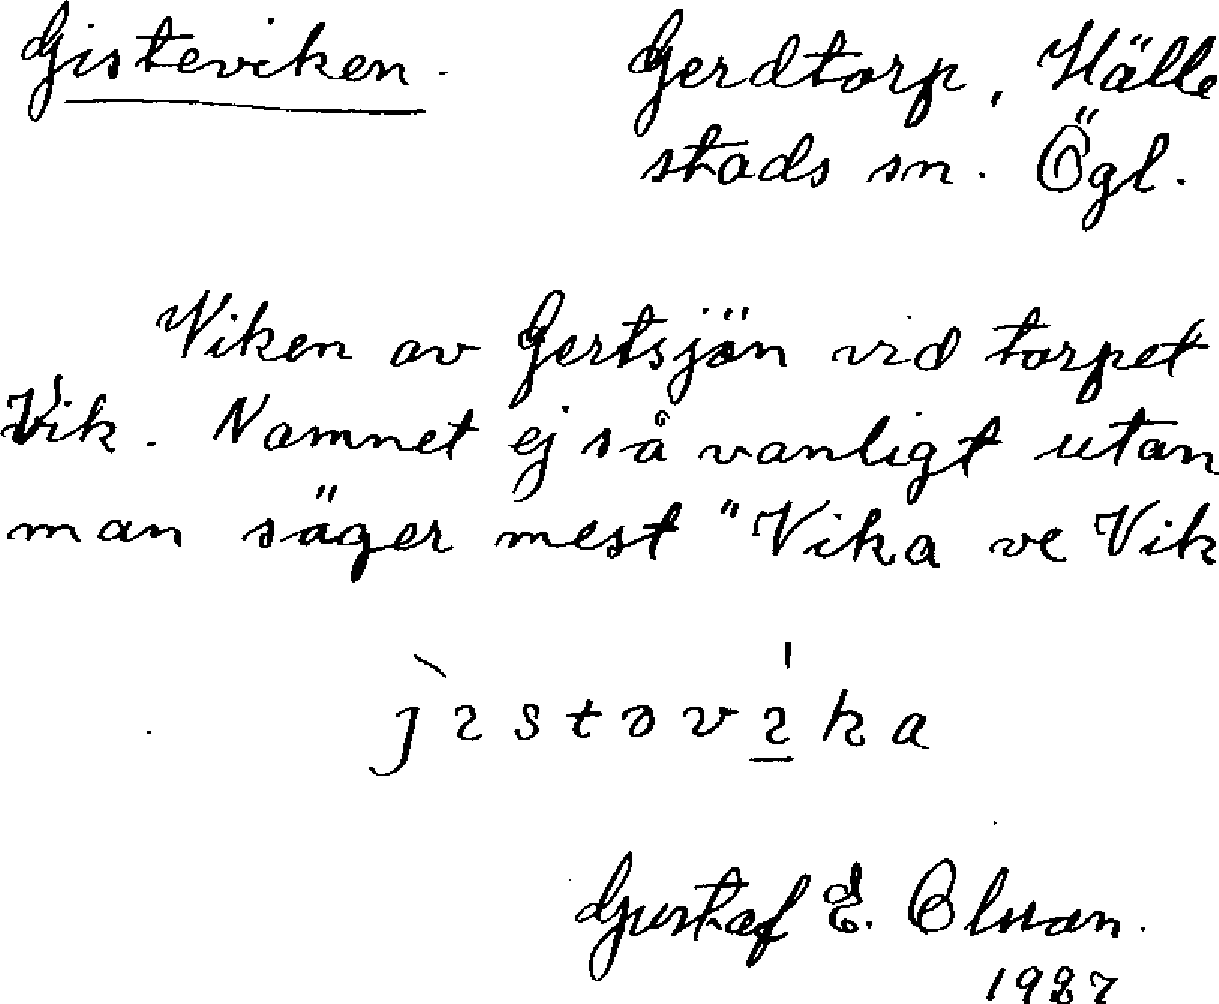 Gisteviken. Gerdtorp, Hälle
stads sn. Ögl.
Viken av Gertsjön vid torpet
Vik. Namnet ej så vanligt utan
man säger mest "Vika ve Vik
j̀ɩstəvɩ̲́ka
Gustaf E. Olsson.
1927